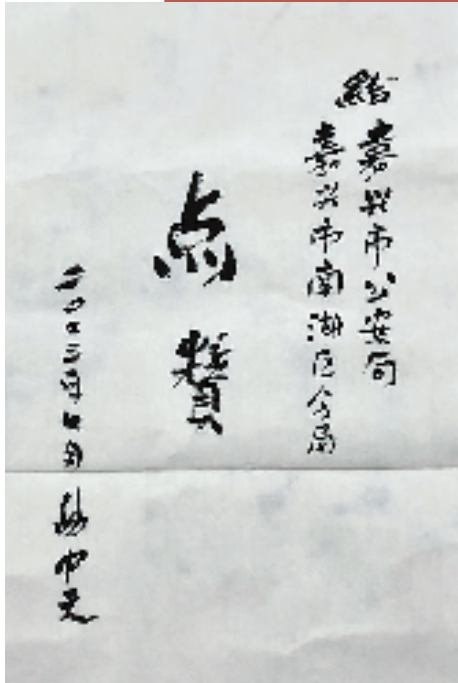 给嘉兴市公安局
嘉兴市南湖区分局
点贊
二〇二三年四月